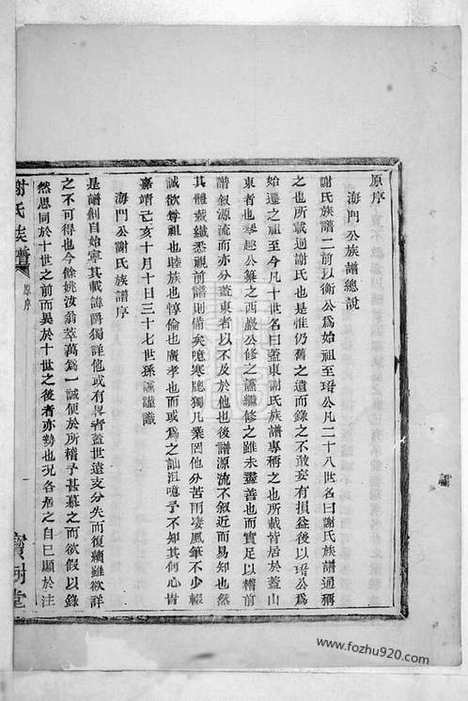 原序
海門公族譜總說
謝氏族譜二前以衡公為始祖至琦公凡二十八世名曰謝氏族譜通稱
之也所載迥謝氏也是惟仍舊之遺而錄之不敢妄有損益後以琦公為
始遷之祖至今凡十世名曰蓋東謝氏族譜專稱之也所載皆居於蓋山
東者也琴趣公纂之西巖公修之謹繼修之雖未盡善也而實足以稽前
譜叙源流而亦分蓋東者以不及於他也後譜源流不叙近而易知也然
其體裁纖悉視前譜則備矣噫寒聰獨凡業罔他分苦雨凄風筆不少輟
誠欲尊祖也睦族也惇倫也廣孝也而或為之訕沮噫予不知其何心肯
嘉靖己亥十月十日三十七世孫謹謹識
海門公謝氏族譜序
是譜創自始寧其載詩爵獨詳他或有畧者蓋世遠支分失而復續雖欲詳
之不可得也今餘姚汝翁萃萬為一誠便於所稽予甚慕之而欲假以錄
然恩同於十世之前而異於十世之後者亦勢也況各居之自已顯於注
謝氏族譜
原序
一
寶樹堂
www.fozhu920.com